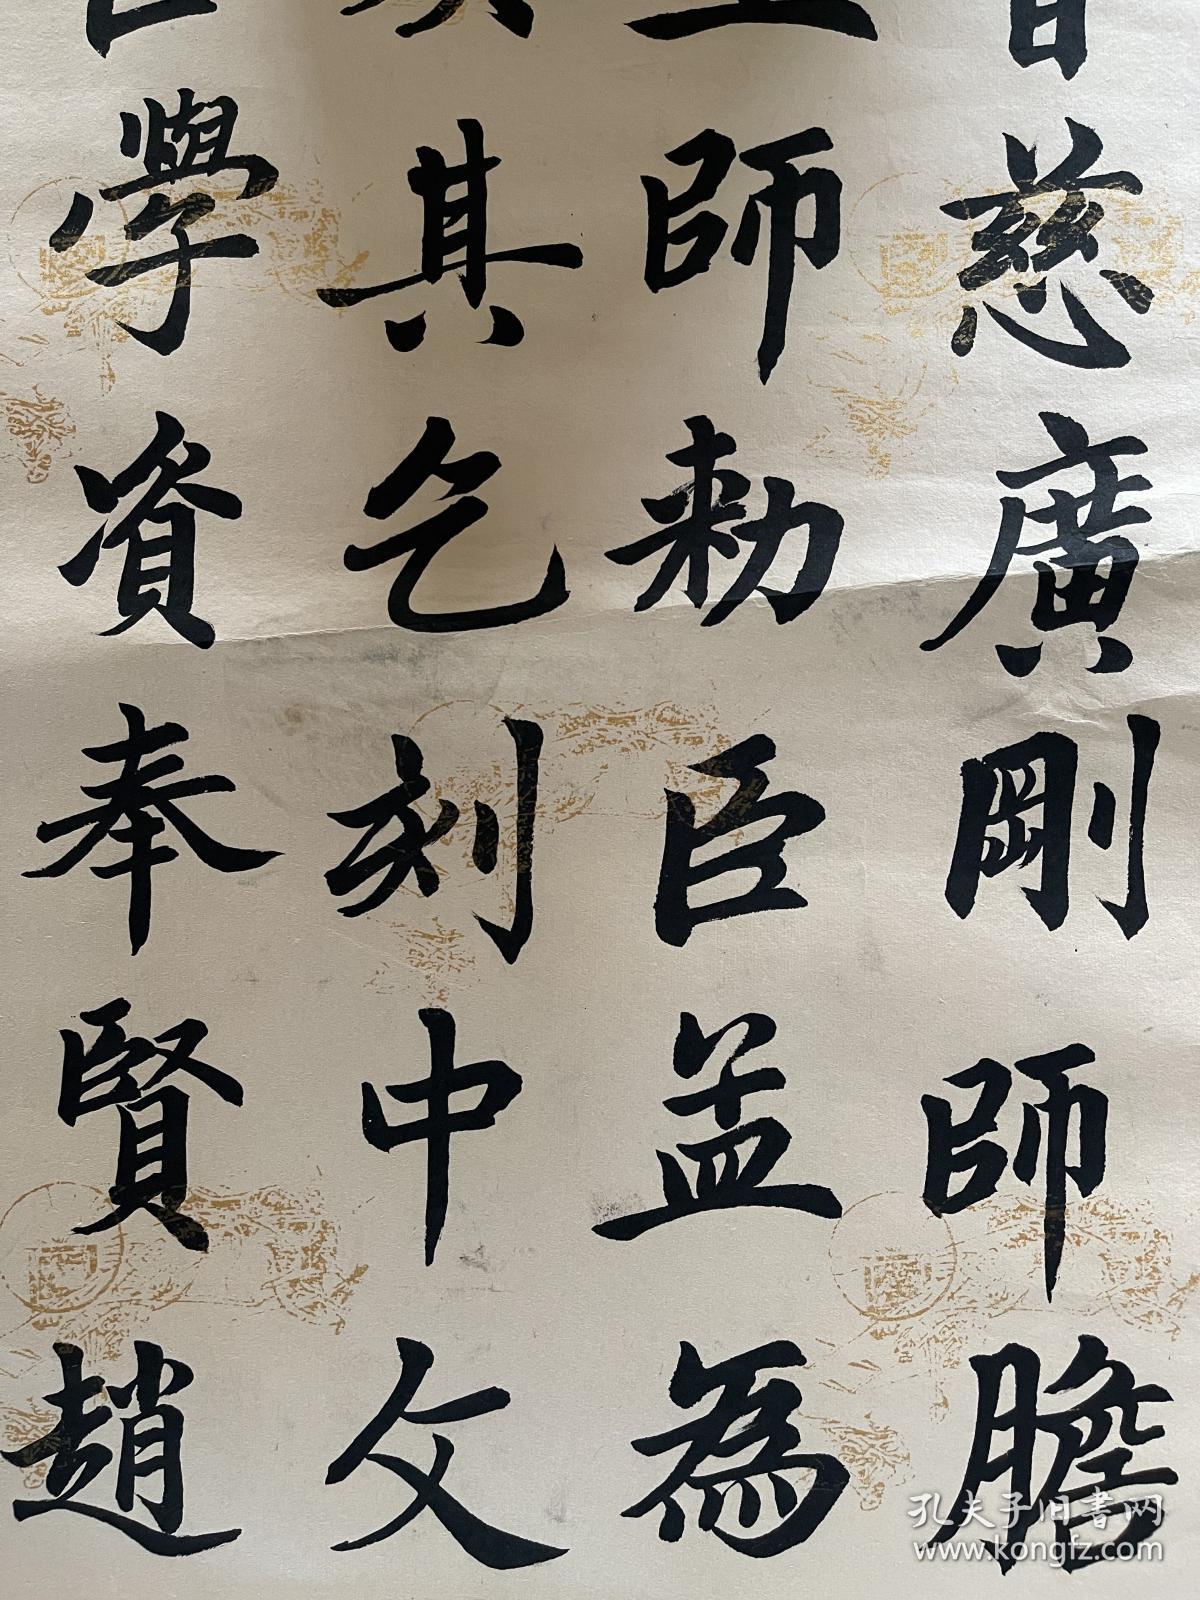 慈廣剛師膽
師勅臣孟為
其乞刻中文
學資奉賢趙
孔夫子旧书网
www.kongfz.com